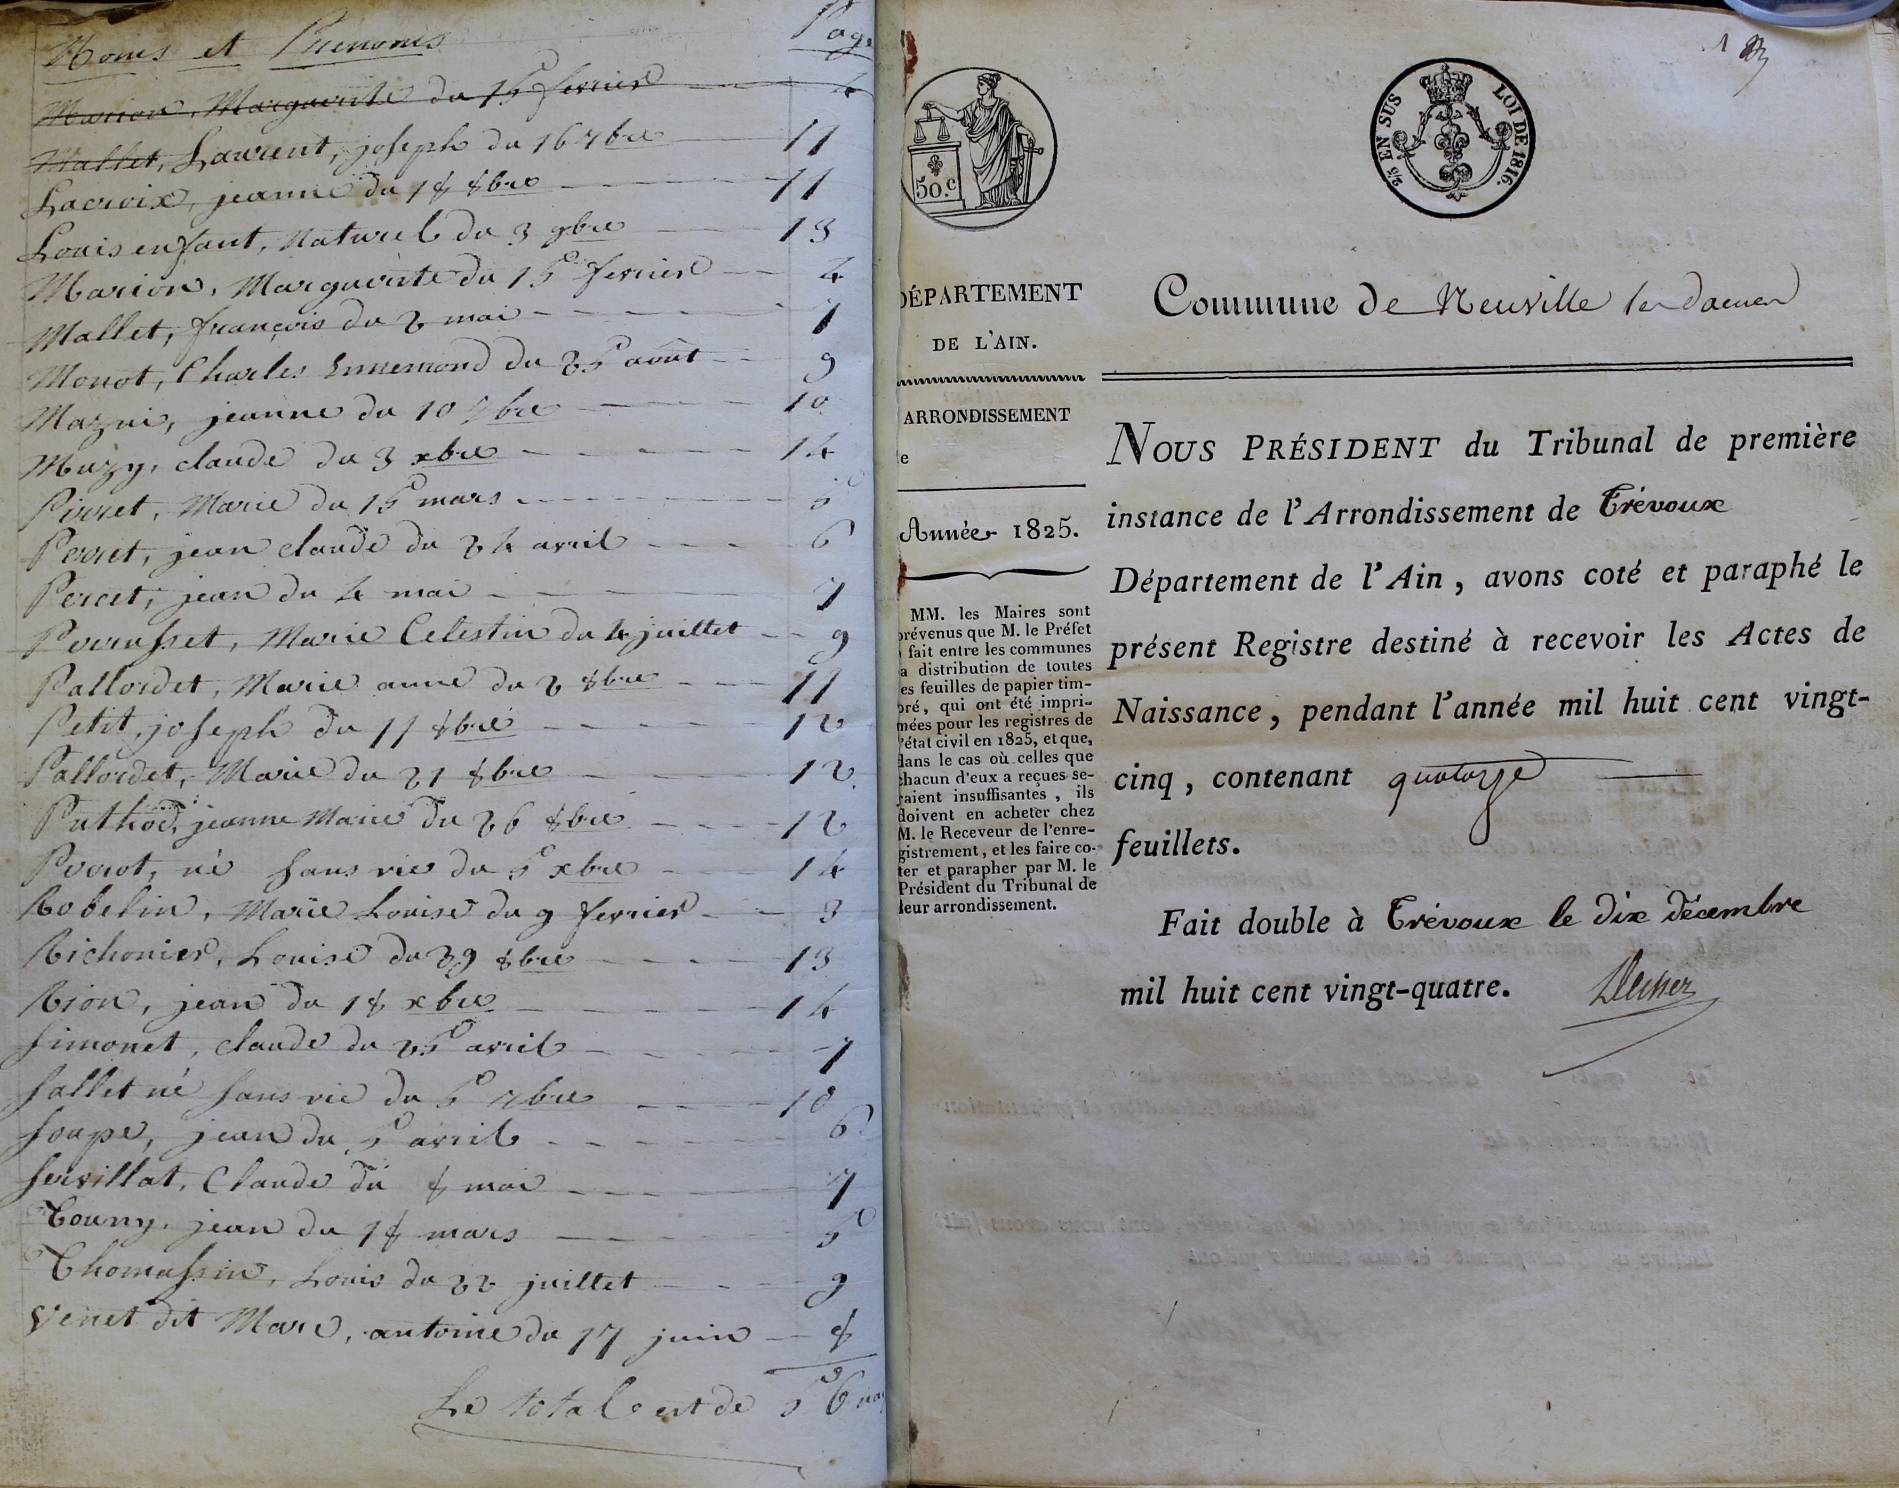 Noms et Prénoms Page
Marion, Marguerite du 15 fevrier 4
Mallet, Laurent, joseph du 16 7bre 11
Lacroix, jeanne du 18 8bre 11
Louis enfant, Naturel du 3 9bre 13
Marion, Marguerite du 15 fevrier 4
Mallet, françois du 2 mai 7
Monot, Charles Ennemond du 25 août 9
Mazui, jeanne du 10 7bre 10
Muzy, claude du 3 xbre 14
Perret, Marie du 15 mars 5
Perret, jean claude du 24 avril 6
Percet, jean du 4 mai 7
Perrusset, Marie Celestin du 4 juillet 9
Pallordet, Marie anne du 2 8bre 11
Petit, joseph du 11 8bre 12
Pallordet, Marie du 21 8bre 12
Puthod, jeanne Marie du 26 8bre 12
Perrot, né sans vie du 5 xbre 14
Robelin, Marie Louise du 9 fevrier 3
Richonier, Louise du 29 8bre 13
Rion, jean du 18 xbre 14
Simonet, claude du 25 avril 7
Sallet né sans vie du 5 7bre 10
Soupe, jean du 5 avril 6
Servillat, Claude du 8 mai 7
Tourny, jean du 18 mars 5
Thomassin, Louis du 22 juillet 9
Venet dit Marc, antoine du 17 juin 8
Le total est de 56
1
50.c
2/5 EN SUS LOI DE 1816.
DÉPARTEMENT
DE L'AIN.
ARRONDISSEMENT
Année 1825.
MM. les Maires sont
prévenus que M. le Préfet
a fait entre les communes
la distribution de toutes
les feuilles de papier tim-
bré, qui ont été impri-
mées pour les registres de
l'état civil en 1825, et que,
dans le cas où celles que
chacun d'eux a reçues se-
raient insuffisantes, ils
doivent en acheter chez
M. le Receveur de l'enre-
gistrement, et les faire co-
ter et parapher par M. le
Président du Tribunal de
leur arrondissement.
Commune de Neuville les dames
NOUS PRÉSIDENT du Tribunal de première
instance de l'Arrondissement de Trévoux
Département de l'Ain, avons coté et paraphé le
présent Registre destiné à recevoir les Actes de
Naissance, pendant l'année mil huit cent vingt-
cinq, contenant quatorze
feuillets.
Fait double à Trévoux le dix décembre
mil huit cent vingt-quatre.